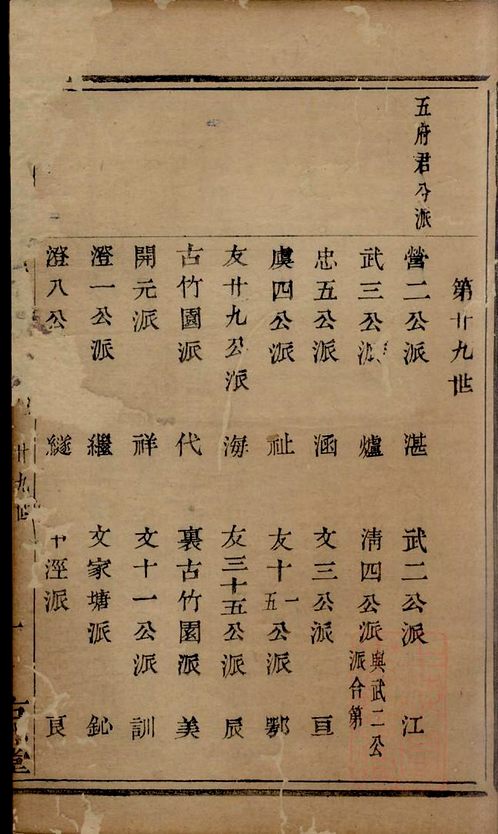 第廿九世
五府君分派
營二公派 湛 武二公派 江
武三公派 爐 淸四公派與武二公派合第
忠五公派 涵 文三公派 亘
虞四公派 祉 友十一五公派 鄂
友廿九公派 海 友三十五公派 辰
古竹園派 代 裏古竹園派 美
開元派 祥 文十一公派 訓
澄一公派 繼 文家塘派 鈊
澄八公 繸 涇派 良
廿九世